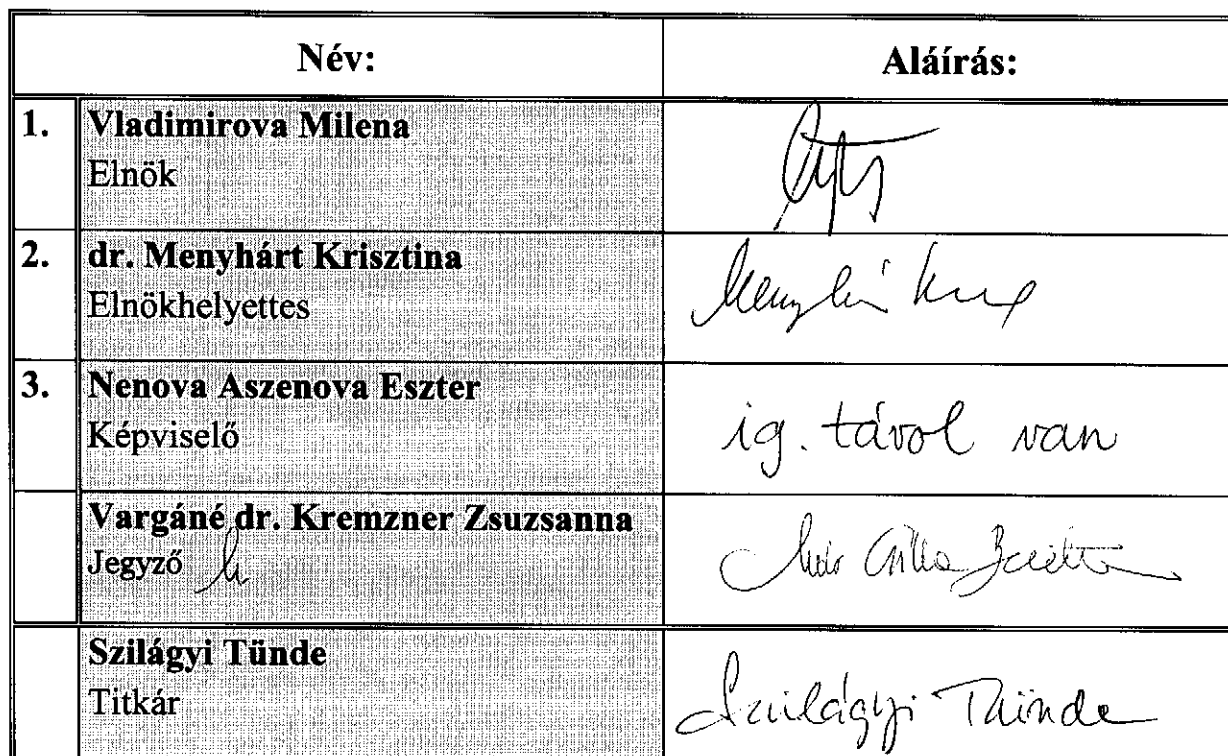 Név: Aláírás:
1. Vladimirova Milena
Elnök
2. dr. Menyhárt Krisztina
Elnökhelyettes
3. Nenova Aszenova Eszter
Képviselő
ig. távol van
Vargáné dr. Kremzner Zsuzsanna
Jegyző
Szilágyi Tünde
Titkár
Szilágyi Tünde